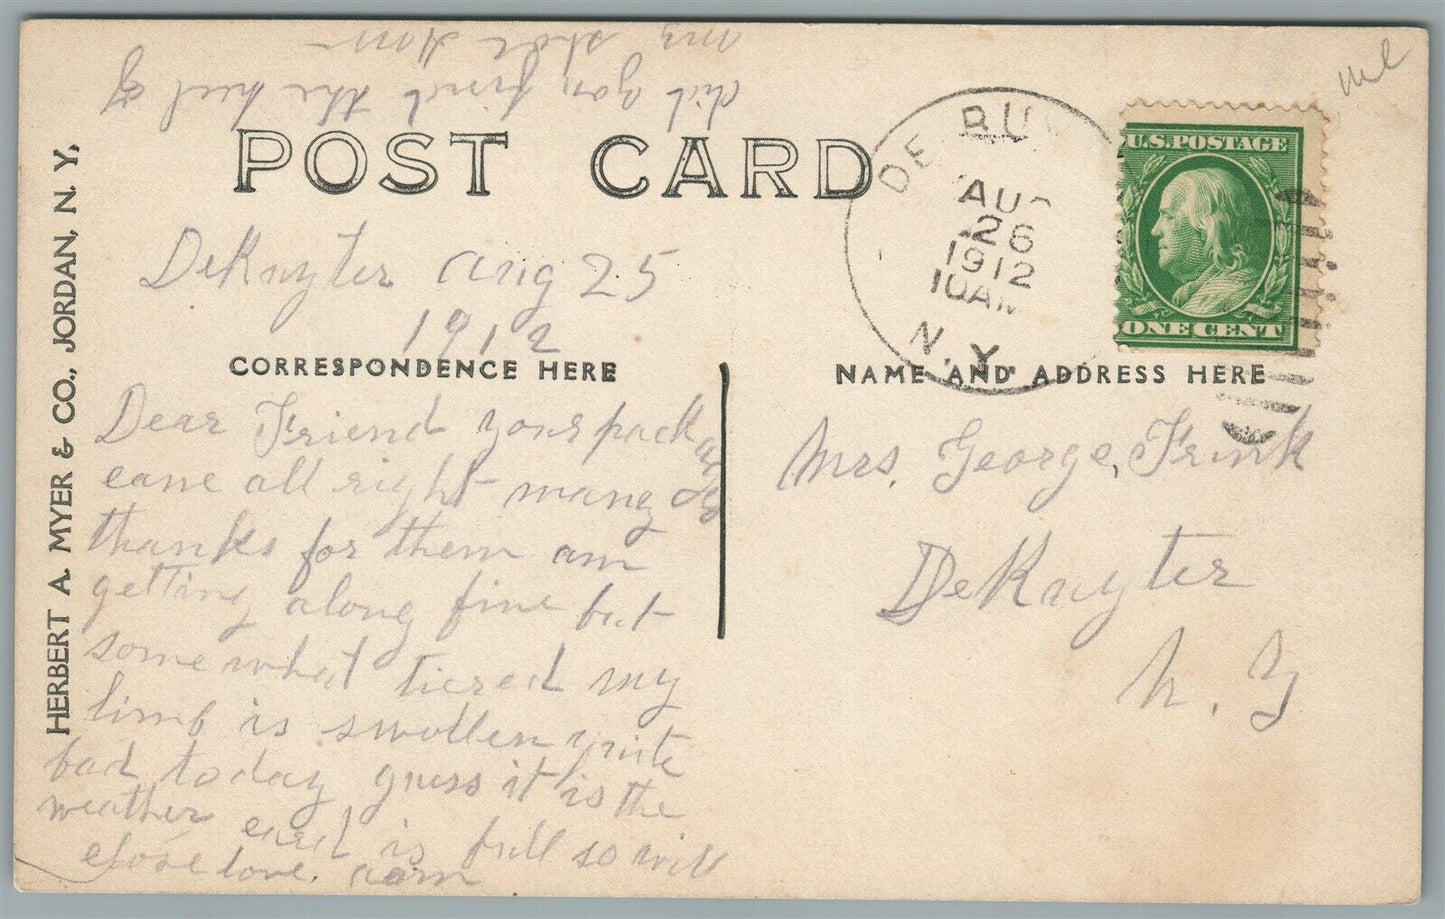 did you find the heel of
my shoe
POST CARD
HERBERT A. MYER & CO., JORDAN, N. Y.
DeRuyter Aug 25
1912
CORRESPONDENCE HERE
Dear Friend your package
came all right many
thanks for them am
getting along fine but
some what tiered my
limb is swollen quite
bad today guess it is the
weather card is full so will
close love
DE RUY
AUG
26
1912
10AM
N.Y.
U.S. POSTAGE
ONE CENT
NAME AND ADDRESS HERE
Mrs. George Frink
DeRuyter
N. Y